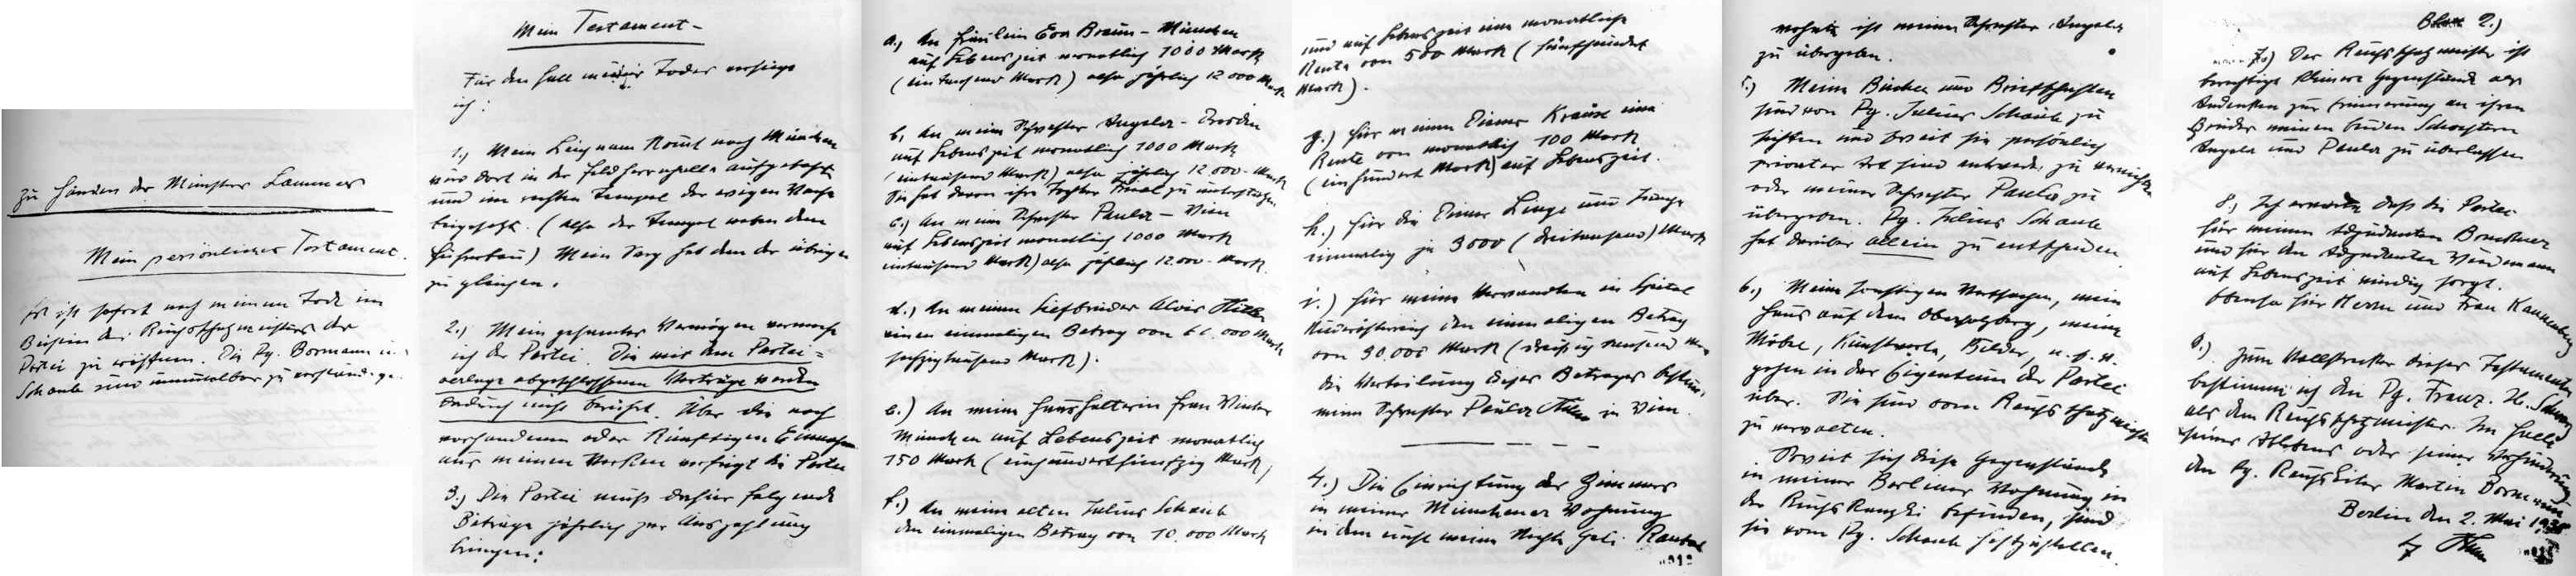 Zu Händen des Ministers Lammers
Mein persönliches Testament.
Es ist sofort nach meinem Tode im
Beisein des Reichsschatzmeisters der
Partei zu eröffnen. Die Pg. Bormann u.
Schaub sind unmittelbar zu verständigen
Mein Testament -
Für den Fall meines Todes verfüge
ich:
1.) Mein Leichnam kommt nach München
wird dort in der Feldherrnhalle aufgebahrt
und im rechten Tempel der ewigen Wache
beigesetzt. (also der Tempel neben dem
Führerbau) Mein Sarg hat dem der übrigen
zu gleichen.
2.) Mein gesamtes Vermögen vermache
ich der Partei. Die mit dem Partei=
verlage abgeschlossenen Verträge werden
dadurch nicht berührt. Über die noch
vorhandenen oder künftigen Einnahmen
aus meinen Werken verfügt die Partei
3.) Die Partei muß dafür folgende
Beträge jährlich zur Auszahlung
bringen:
a.) An Fräulein Eva Braun - München
auf Lebenszeit monatlich 1000 Mark
(eintausend Mark) also jährlich 12 000 Mark
b, An meine Schwester Angela - Dresden
auf Lebenszeit monatlich 1000 Mark
(eintausend Mark) also jährlich 12 000 - Mark
Sie hat davon ihre Tochter Friedl zu unterstützen.
c.) An meine Schwester Paula - Wien
auf Lebenszeit monatlich 1000 Mark
eintausend Mark) also jährlich 12.000 - Mark.
d.) An meinen Stiefbruder Alois Hitler
einen einmaligen Betrag von 60.000 Mark
sechzigtausend Mark).
e.) An meine Haushälterin Frau Winter
München auf Lebenszeit monatlich
150 Mark (einhundertfünfzig Mark)
f.) An meinen alten Julius Schaub
den einmaligen Betrag von 10.000 Mark
und auf Lebenszeit eine monatliche
Rente von 500 Mark (fünfhundert
Mark).
g.) Für meinen Diener Krause eine
Rente von monatlich 100 Mark
(einhundert Mark) auf Lebenszeit.
h.) Für die Diener Linge und Junge
einmalig je 3000 (dreitausend) Mark
i.) Für meine Verwandten in Spital
Niederösterreich den einmaligen Betrag
von 30.000 Mark (dreißigtausend Mark
die Verteilung dieses Betrages bestimmt
meine Schwester Paula Hitler in Wien.
4.) Die Einrichtung des Zimmers
in meiner Münchener Wohnung
in dem einst meine Nichte Geli Raubal
wohnte ist meiner Schwester Angela
zu übergeben.
5.) Meine Bücher und Briefschaften
sind von Pg. Julius Schaub zu
sichten und soweit sie persönlich
privater Art sind entweder zu vernichten
oder meiner Schwester Paula zu
übergeben. Pg. Julius Schaub
hat darüber allein zu entscheiden
6.) Meine sonstigen Wertsachen, mein
Haus auf dem Obersalzberg, meine
Möbel, Kunstwerke, Bilder, u.s.w.
gehen in das Eigentum der Partei
über. Sie sind vom Reichsschatzmeister
zu verwalten.
Soweit sich diese Gegenstände
in meiner Berliner Wohnung in
der Reichskanzlei befinden, sind
sie vom Pg. Schaub festzustellen
Blatt 2.)
7.) Der Reichsschatzmeister ist
berechtigt kleinere Gegenstände als
Andenken zur Erinnerung an ihren
Bruder meinen beiden Schwestern
Angela und Paula zu überlassen
8.) Ich erwarte daß die Partei
für meinen Adjudanten Brückner
und für den Adjudanten Wiedemann
auf Lebenszeit würdig sorgt.
Ebenso für Herrn und Frau Kannenberg
9.) Zum Vollstrecker dieses Testamentes
bestimme ich den Pg. Franz. X. Schwarz
als den Reichsschatzmeister. Im Falle
seines Ablebens oder seiner Verhinderung
den Pg. Reichsleiter Martin Bormann
Berlin den 2. Mai 1938